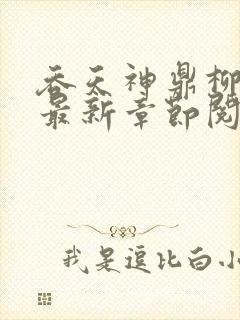 吞天神鼎柳
最新章节阅
我是逗比白小